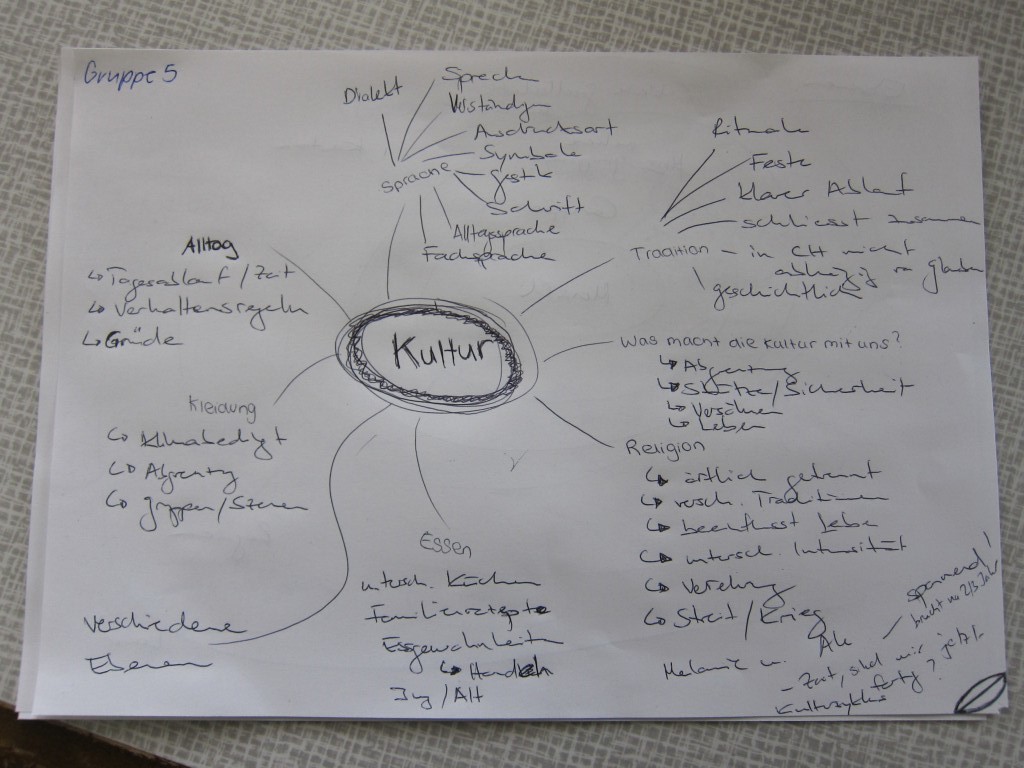 Gruppe 5
Kultur
Sprache
Dialekt
Sprechen
Verständigen
Ausdrucksart
Symbole
Gestik
Schrift
Alltagssprache
Fachsprache
Tradition
Rituale
Feste
klarer Ablauf
schliesst zusammen
in CH nicht
abhängig von Glauben
geschichtlich
Was macht die Kultur mit uns?
Abgrenzung
Schütze/Sicherheit
Leben
Religion
örtlich getrennt
versch. Traditionen
beeinflusst Leben
untersch. Intensität
Verehrung
Streit/Krieg
Essen
untersch. Küchen
Familienrezepte
Essgewohnheiten
Jung/Alt
verschiedene
Ebenen
Kleidung
Klimabedingt
Abgrenzung
Gruppen/Szenen
Alltag
Tagesablauf/Zeit
Verhaltensregeln
Grüde
Melanie u.
spannend!
- Zeit, sind wir
Kulturzyklus fertig? jetzt